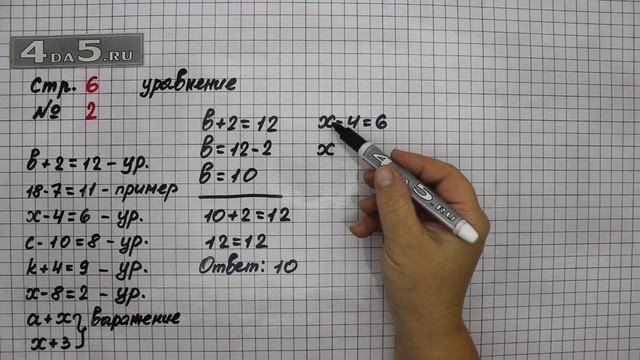 4DA5.RU
Стр. 6 уравнение
№ 2
в+2=12 - ур.
18-7=11 - пример
х-4=6 - ур.
с-10=8 - ур.
k+4=9 - ур.
х-8=2 - ур.
а+х } выражение
х+3
в+2=12
в=12-2
в=10
10+2=12
12=12
Ответ: 10
х-4=6
х
4DA5.RU